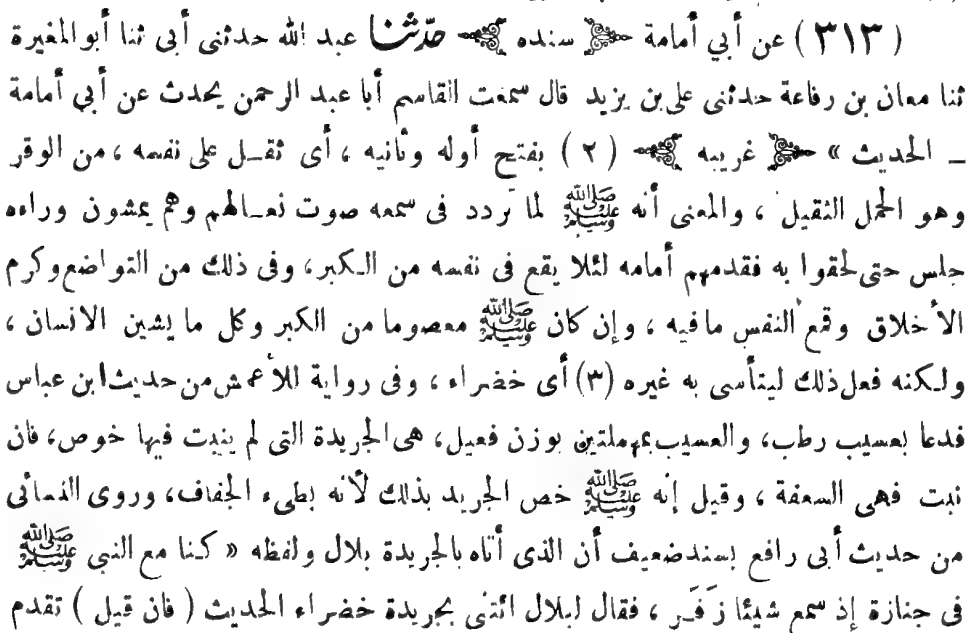 ( ٣١٣ ) عن أبي أمامة ﴿ سنده ﴾ حدّثنا عبد الله حدثنى أبى ثنا أبو المغيرة
ثنا معان بن رفاعة حدثنى على بن يزيد قال سمعت القاسم أبا عبد الرحمن يحدث عن أبي أمامة
ـ الحديث » ﴿ غريبه ﴾ ( ٢ ) بفتح أوله وثانيه ، أى ثقـل على نفسه ، من الوقر
وهو الحمل الثقيل ، والمعنى أنه ﷺ لما تردد فى سمعه صوت نعـالهم وهم يمشون وراءه
جلس حتى لحقوا به فقدمهم أمامه لئلا يقع فى نفسه من الـكبر، وفى ذلك من التواضع وكرم
الأخلاق وقمع النفس ما فيه ، وإن كان ﷺ معصوما من الكبر وكل ما يشين الانسان ،
ولـكنه فعل ذلك ليتأسى به غيره (٣) أى خضراء ، وفى رواية للأعمش من حديث ابن عباس
فدعا بعسيب رطب، والعسيب بمهملتين بوزن فعيل، هى الجريدة التى لم ينبت فيها خوص، فان
نبت فهى السعفة ، وقيل إنه ﷺ خص الجريد بذلك لأنه بطىء الجفاف، وروى النسائى
من حديث أبى رافع بسند ضعيف أن الذى أتاه بالجريدة بلال ولفظه « كـنا مع النبى ﷺ
فى جنازة إذ سمع شيئا زَفَـر ، فقال لبلال ائتنى بجريدة خضراء الحديث ( فان قيل ) تقدم